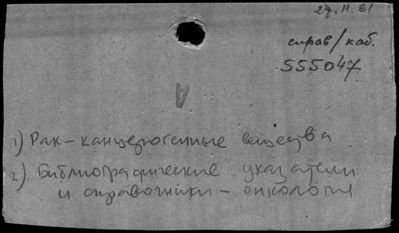 27.11.61
справ/каб.
555047
1) Рак - канцерогенные вещества
2) Библиографические указатели
и справочники - онкология